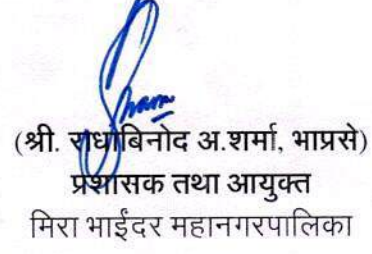 (श्री. राधाबिनोद अ.शर्मा, भाप्रसे)
प्रशासक तथा आयुक्त
मिरा भाईंदर महानगरपालिका